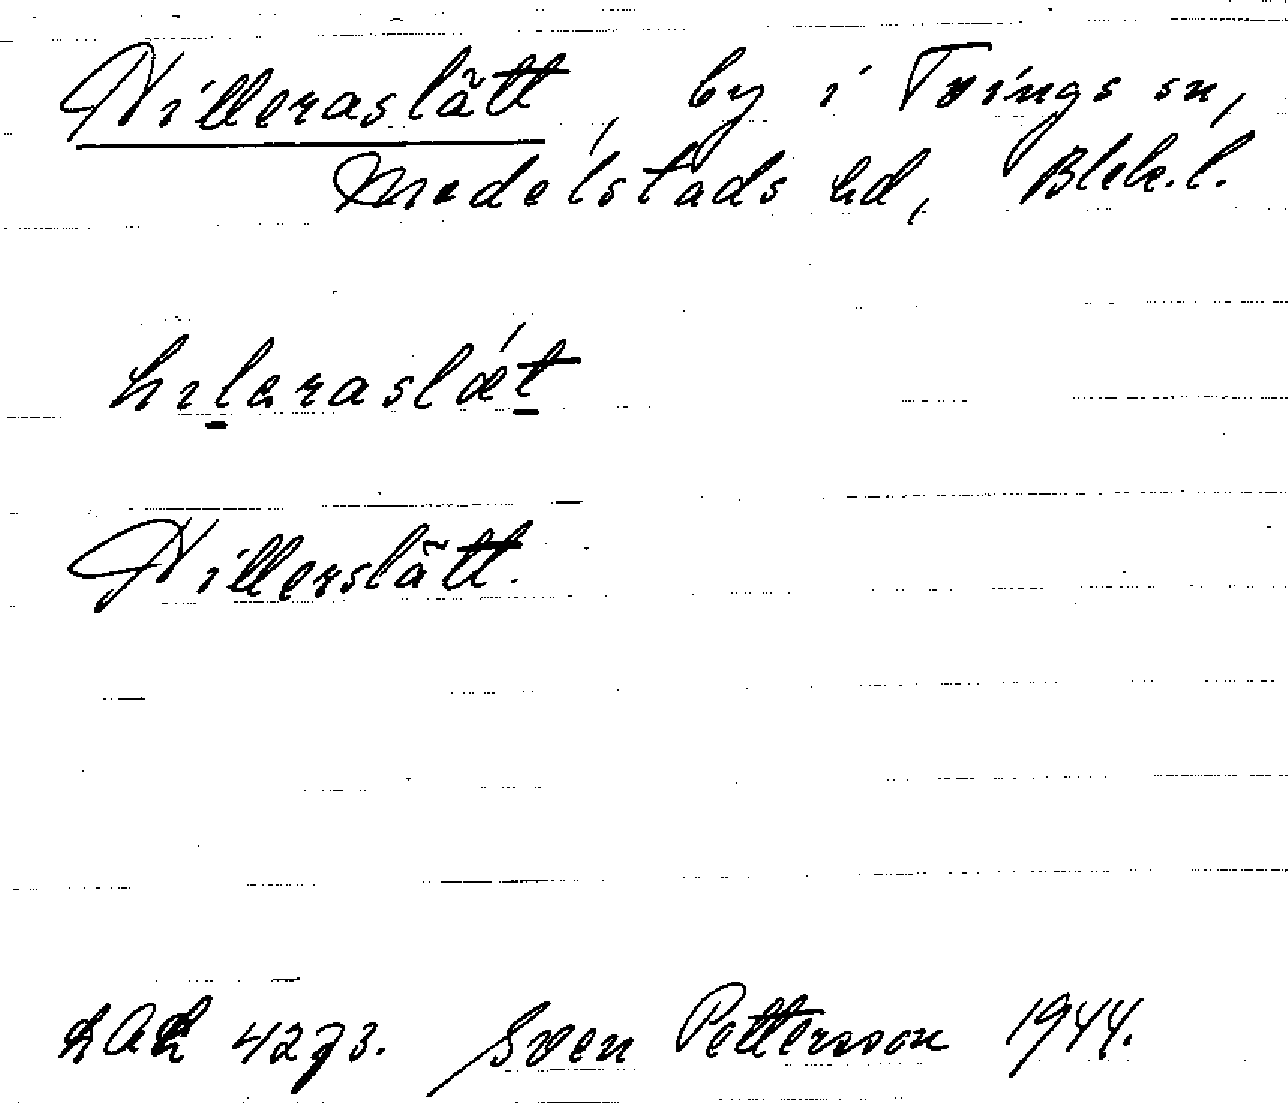 Hilleraslätt, by i Tvings sn,
Medelstads hd, Blek.l.
hileraslǽt
Hillerslätt.
LAL 4273. Sven Pettersson 1944.